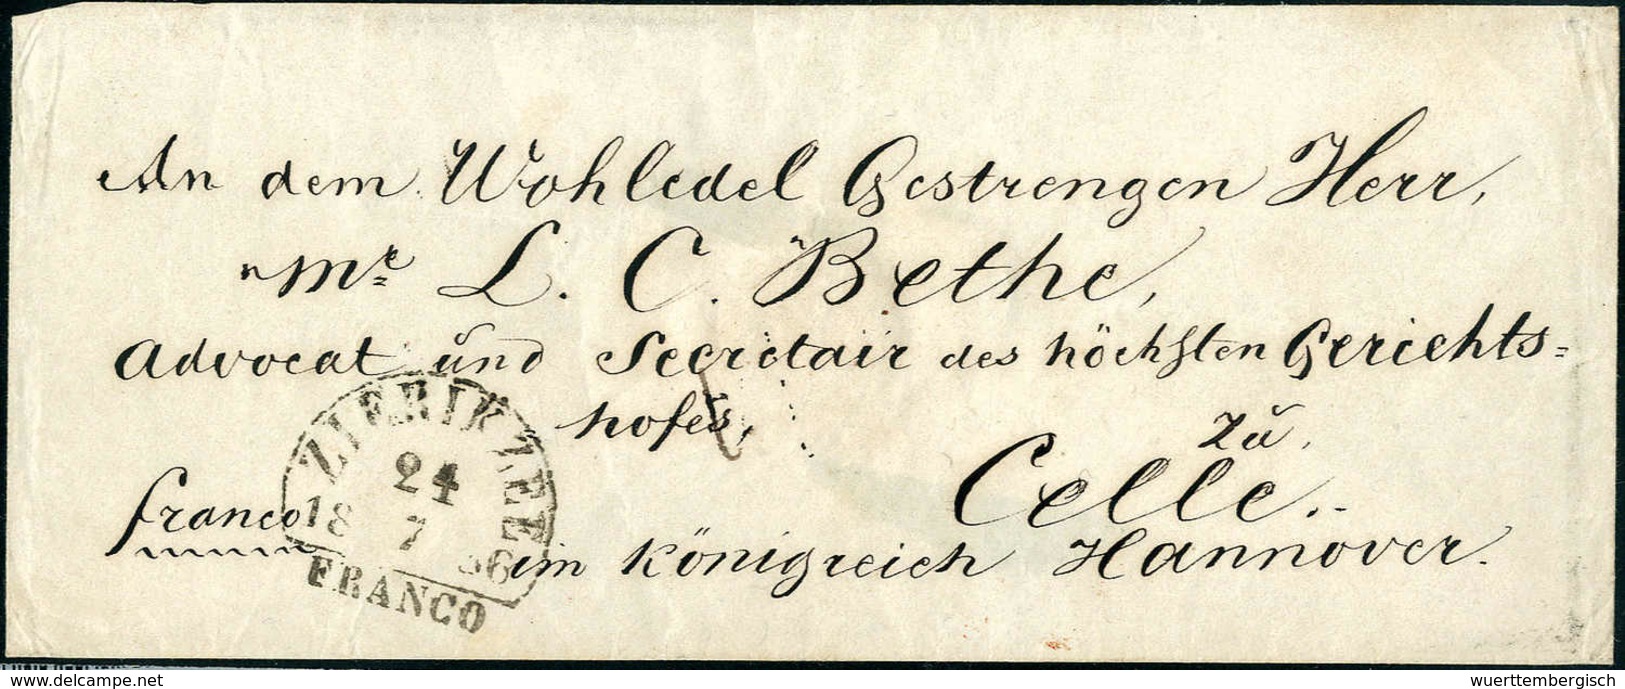 An dem Wohledel Gestrengen Herr,
"Mr L. C. Bethe,"
Advocat und Secretair des höchsten Gerichts=
hofes,
zu
Celle.
franco
im Königreich Hannover.
ZIERIKZEE
24
18 7 56
FRANCO
delcampe.net
wuerttembergisch